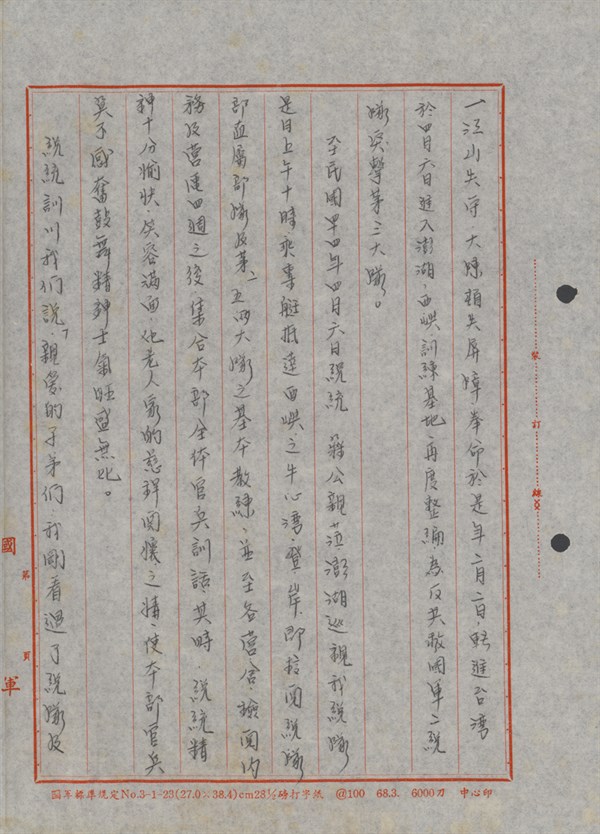 一江山失守大陳頓失屏障奉命於是年二月二日,轉進台灣
於四月六日進入澎湖,西嶼訓練基地,再度整編為反共救國軍二總
隊突擊第三大隊。
至民國卌四年四月六日總統 蔣公親蒞澎湖巡視我總隊
是日上午十時乘專艇抵達西嶼,之牛心灣,登岸,即校閱總隊
部直屬部隊及第一、五四大隊之基本教練,並至各營舍,檢閱內
務及營建四週之後集合本部全体官兵訓話,其時,總統精
神十分愉快,笑容滿面,他老人家的慈祥関懷之情,使本部官兵
莫不感奮鼓舞精神士氣旺盛無比。
總統訓示我們說「親愛的子弟們,我剛看過了總隊及
裝 訂 線
國 第 頁 軍
國軍標準規定No.3-1-23(27.0×38.4)cm28½磅打字紙 @100 68.3. 6000刀 中心印